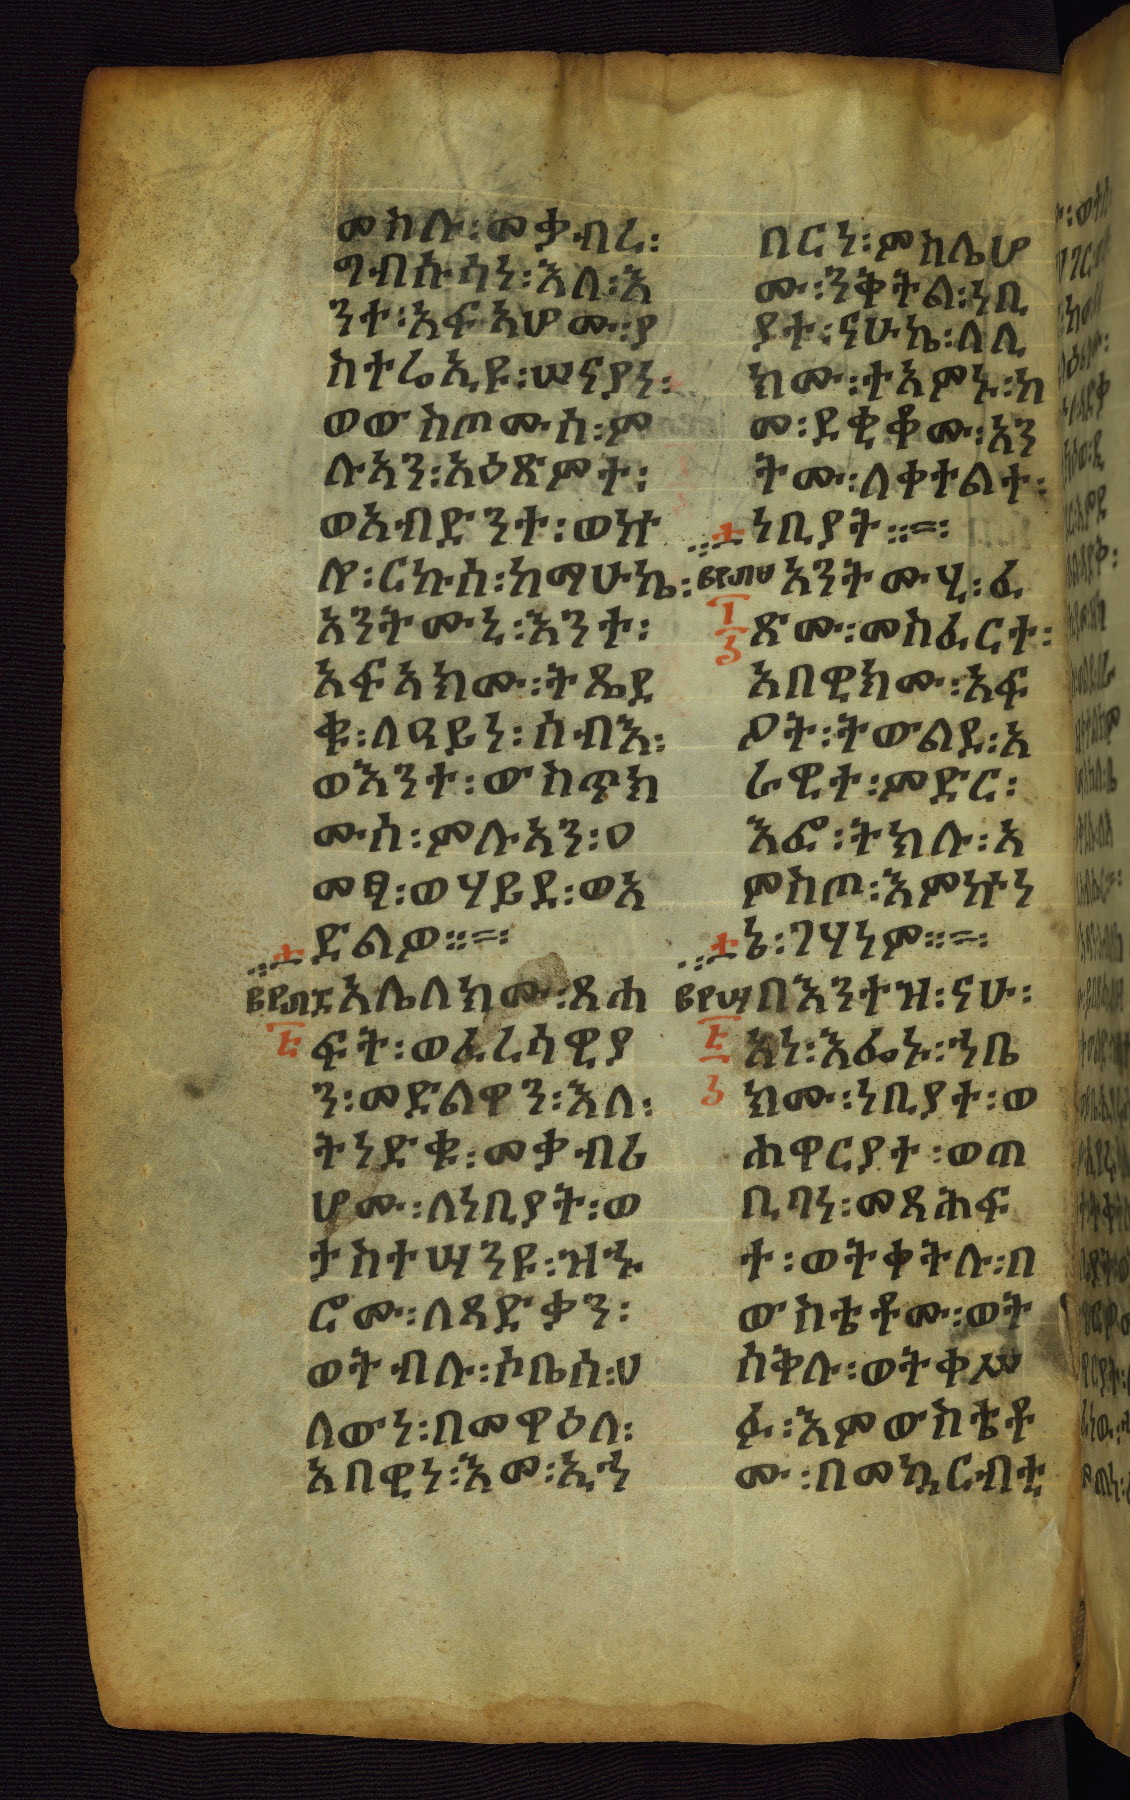 መከሉ፡መቃብረ፡
ግብሱሳነ፡እለ፡እ
ንተ፡አፍአሆሙ፡ያ
ስተሬኢዩ፡ሠናያነ፡
ወውስጦሙስ፡ም
ሉእን፡አዕጽምት፡
ወአብድንት፡ወኵ
ሎ፡ርኩስ፡ከማሁኬ፡
አንትሙኒ፡እንተ፡
አፍአክሙ፡ትጼደ
ቁ፡ለዓይነ፡ሰብእ፡
ወእንተ፡ውስጥክ
ሙሰ፡ምሉኣን፡ዐ
መፃ፡ወሃይደ፡ወአ
ድልዎ።
አሌለክሙ፡ጸሐ
ፍት፡ወፈሪሳዊያ
ን፡መድልዋን፡እለ፡
ትነድቁ፡መቃብሪ
ሆሙ፡ለነቢያት፡ወ
ታስተሣንዩ፡ዝኅ
ሮሙ፡ለጻድቃን፡
ወትብሉ፡ሶቤሰ፡ሀ
ለውነ፡በመዋዕለ፡
አበዊነ፡እመ፡ኢኀ
በርነ፡ምስሌሆ
ሙ፡ንቅትል፡ነቢ
ያተ፡ናሁኬ፡ለሊ
ክሙ፡ተአምኑ፡ከ
መ፡ደቂቆሙ፡አን
ትሙ፡ለቀተልተ፡
ነቢያት።
አንትሙሂ፡ፈ
ጽሙ፡መስፈርተ፡
አበዊክሙ፡አፍ
ዖት፡ትውልደ፡አ
ራዊተ፡ምድር፡
እፎ፡ትክሉ፡አ
ምስጦ፡እምኵነ
ኔ፡ገሃነም።
በእንተዝ፡ናሁ፡
አነ፡እፌኑ፡ኀቤ
ክሙ፡ነቢያተ፡ወ
ሐዋርያተ፡ወጠ
ቢባነ፡መጻሕፍ
ተ፡ወትቀትሉ፡በ
ውስቴቶሙ፡ወት
ሰቅሉ፡ወትቀሥ
ፉ፡እምውስቴቶ
ሙ፡በመኳርብቲ